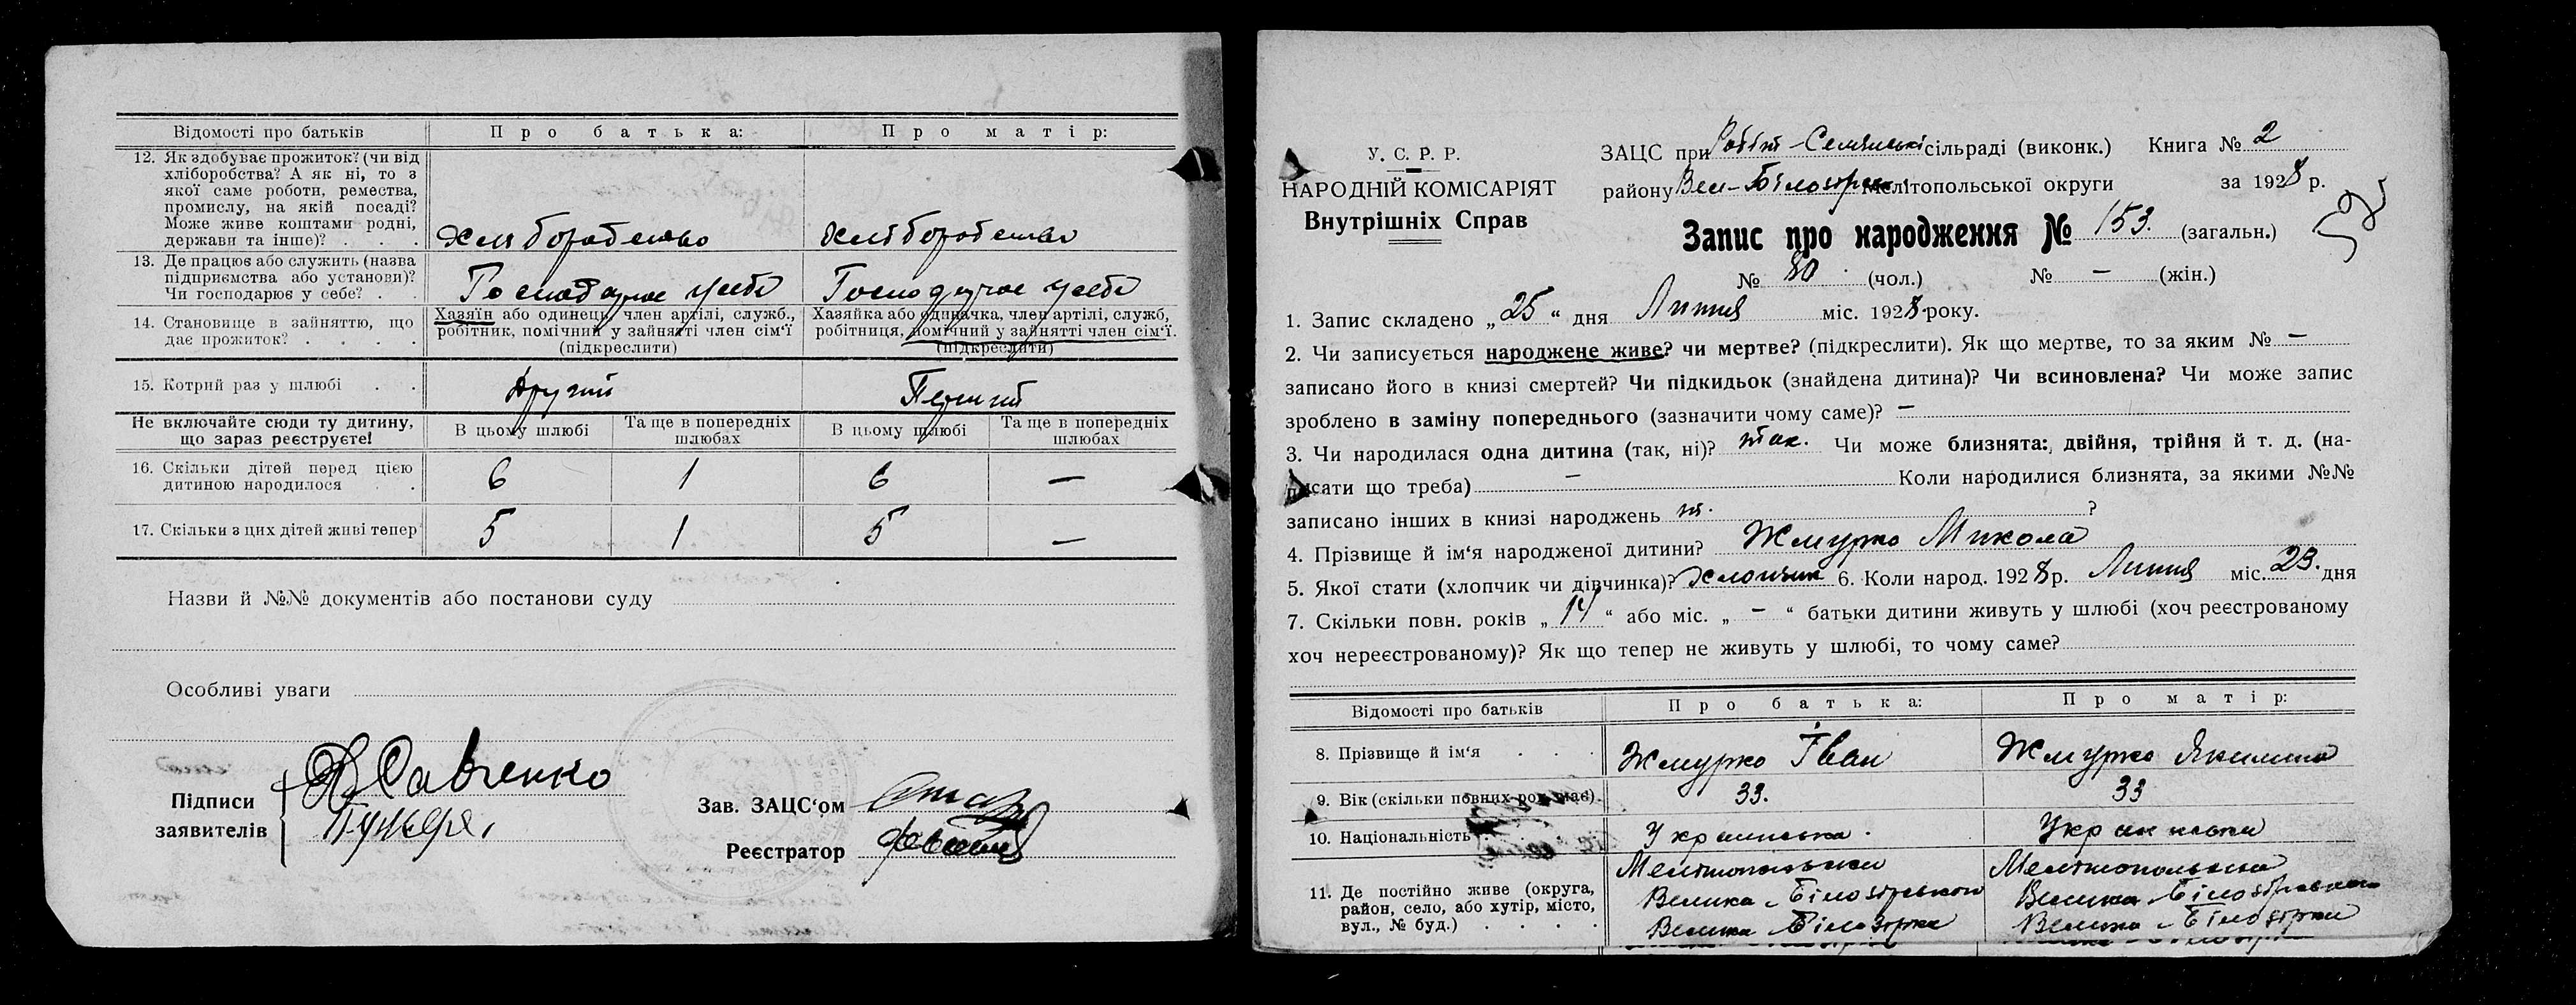 Відомості про батьків | Про батька: | Про матір:
12. Як здобуває прожиток? (чи від
хліборобства? А як ні, то з
якої саме роботи, ремества,
промислу, на якій посаді?
Може живе коштами родні,
держави та інше)? . . . | Хліборобство | Хліборобство
13. Де працює або служить (назва
підприємства або установи)?
Чи господарює у себе? . . | Господарює у себе | Господарює у себе
14. Становище в зайняттю, що
дає прожиток? . . . . | Хазяїн або одинець, член артілі, служб., | Хазяйка або одиначка, член артілі, служб,
робітник, помічний у зайнятті член сім'ї | робітниця, помічний у зайнятті член сім'ї.
(підкреслити) | (підкреслити)
15. Котрий раз у шлюбі . . | Другий | Перший
Не включайте сюди ту дитину,
що зараз реєструєте! | В цьому шлюбі | Та ще в попередніх шлюбах | В цьому шлюбі | Та ще в попередніх шлюбах
16. Скільки дітей перед цією
дитиною народилося . . | 6 | 1 | 6 | —
17. Скільки з цих дітей живі тепер | 5 | 1 | 5 | —
Назви й №№ документів або постанови суду
Особливі уваги
Підписи
заявителів
Савченко
Зав. ЗАЦС'ом
Реєстратор
У. С. Р. Р.
НАРОДНІЙ КОМІСАРІЯТ
Внутрішніх Справ
ЗАЦС при сільраді (виконк.) Книга № 2
району Вел-Білозірськ Мелітопольської округи за 1928 р.
Запис про народження № 153. (загальн.)
№ 80 (чол.) № — (жін.)
1. Запис складено „25" дня Липня міс. 1928 року.
2. Чи записується народжене живе? чи мертве? (підкреслити). Як що мертве, то за яким № —
записано його в книзі смертей? Чи підкидьок (знайдена дитина)? Чи всиновлена? Чи може запис
зроблено в заміну попереднього (зазначити чому саме)? —
3. Чи народилася одна дитина (так, ні)? так. Чи може близнята: двійня, трійня й т. д. (на-
писати що треба) — Коли народилися близнята, за якими №№
записано інших в книзі народжень ?
4. Прізвище й ім'я народженої дитини? Жмурко Микола
5. Якої стати (хлопчик чи дівчинка)? Хлопчик 6. Коли народ. 1928 р. Липня міс. 23. дня
7. Скільки повн. років „14" або міс. „—" батьки дитини живуть у шлюбі (хоч реєстрованому
хоч нереєстрованому)? Як що тепер не живуть у шлюбі, то чому саме?
Відомості про батьків | Про батька: | Про матір:
8. Прізвище й ім'я . . . | Жмурко Іван | Жмурко Якилина
9. Вік (скільки повних рок. має). | 33. | 33
10. Національність . . . | Українська. | Українська
11. Де постійно живе (округа,
район, село, або хутір, місто,
вул., № буд.) . . . . | Мелітопольська | Мелітопольська
Велика-Білозірського | Велика-Білозірського
Велика-Білозірка | Велика-Білозірка